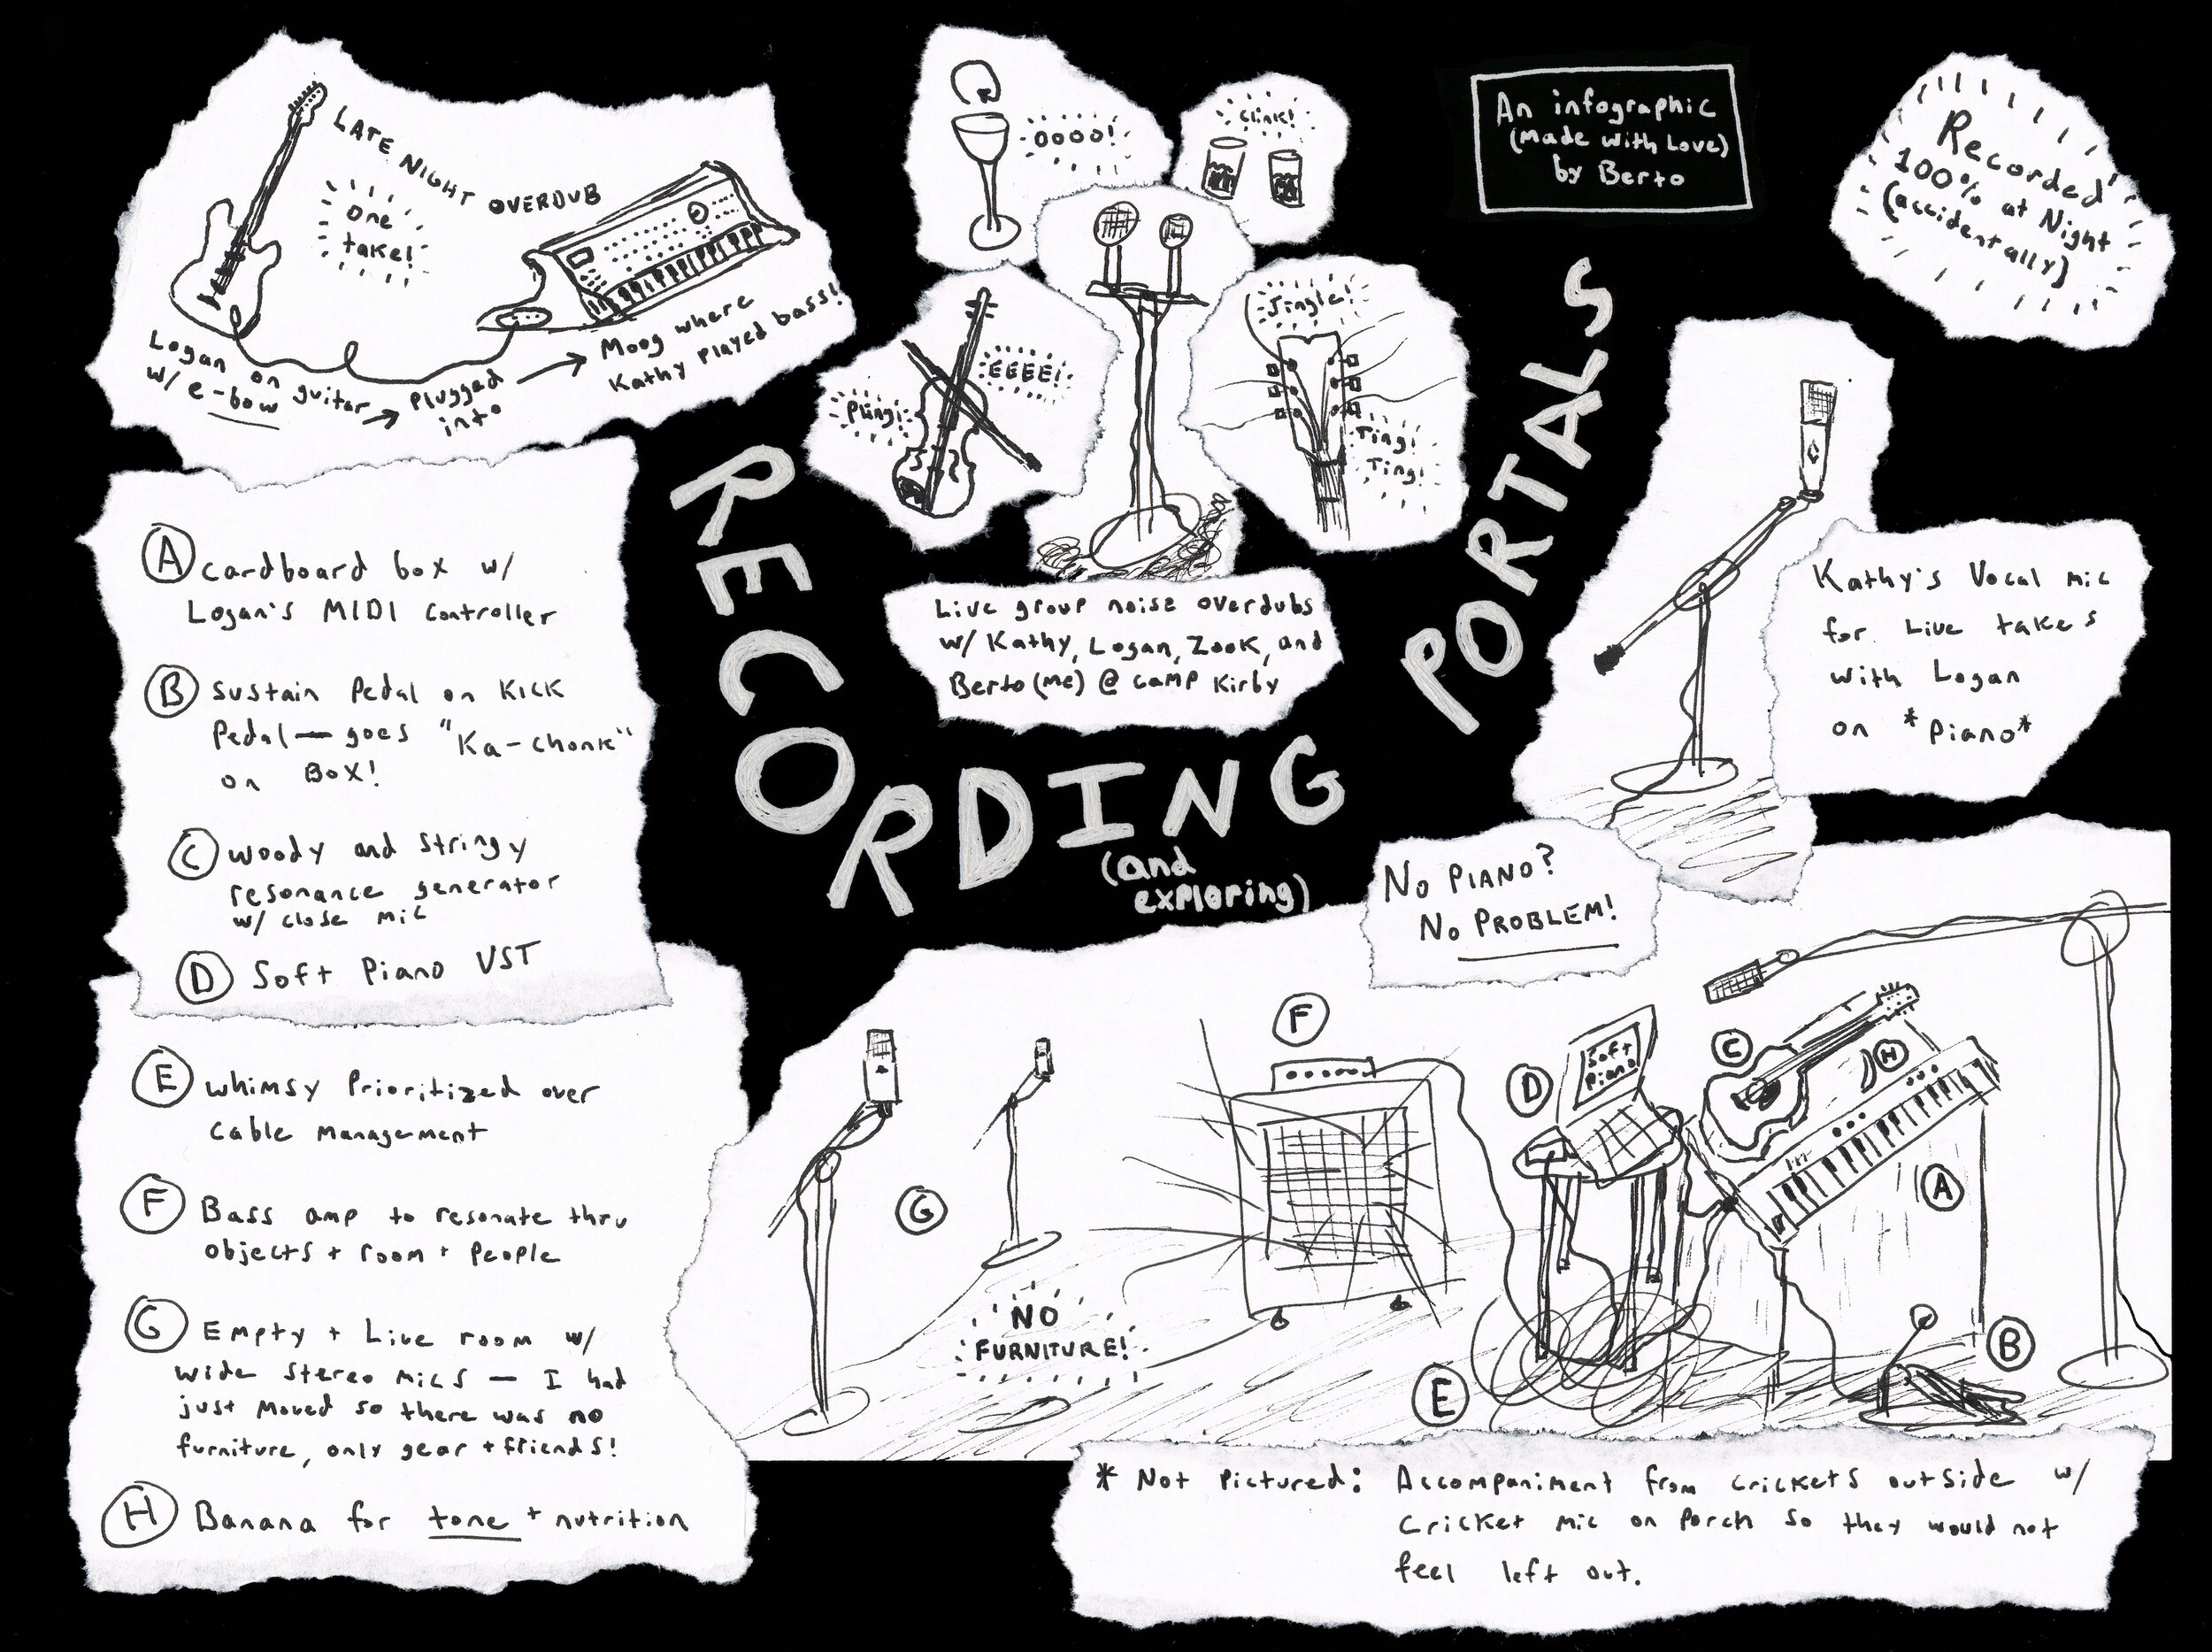 LATE NIGHT OVERDUB
One
take!
Logan on guitar
w/ e-bow
Plugged
into
Moog where
Kathy played bass!
OOOO!
Clink!
Pling!
EEEE!
Jingle!
Ting!
Ting!
Live group noise overdubs
w/ Kathy, Logan, Zook, and
Berto (me) @ Camp Kirby
An infographic
(made with Love)
by Berto
Recorded
100% at Night
(accidentally)
RECORDING
(and
exploring)
PORTALS
Kathy's Vocal mic
for Live takes
with Logan
on *Piano*
A cardboard box w/
Logan's MIDI Controller
B Sustain Pedal on Kick
Pedal — goes "Ka-chonk"
on Box!
C woody and stringy
resonance generator
w/ close mic
D Soft Piano VST
E whimsy Prioritized over
Cable Management
F Bass amp to resonate thru
objects + room + people
G Empty + Live room w/
wide stereo mics — I had
just moved so there was no
furniture, only gear + friends!
H Banana for tone + nutrition
NO PIANO?
NO PROBLEM!
G
NO
FURNITURE!
F
D
Soft
Piano
C
H
A
E
B
* Not Pictured: Accompaniment from crickets outside w/
Cricket mic on Porch so they would not
feel left out.